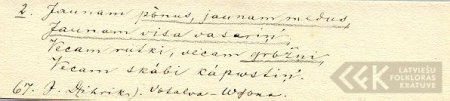 2. Jaunam pōnus, jaunam medus,
Jaunam visa vasariņ',
Vecam rutki, vecam grōžni,
Vecam skābi kāpostiņ'.
67. J. Vosalva-
LATVIEŠU
FOLKLORAS
KRĀTUVE